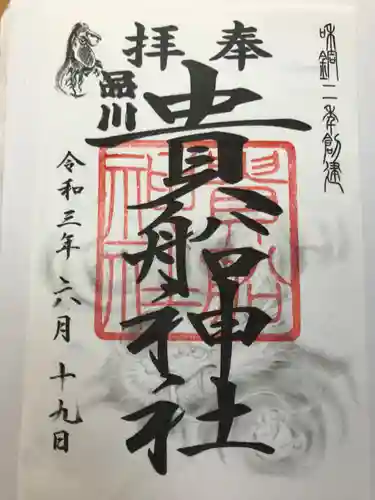 奉拝
和銅二年創建
品川
貴船神社
貴船神社
令和三年六月十九日